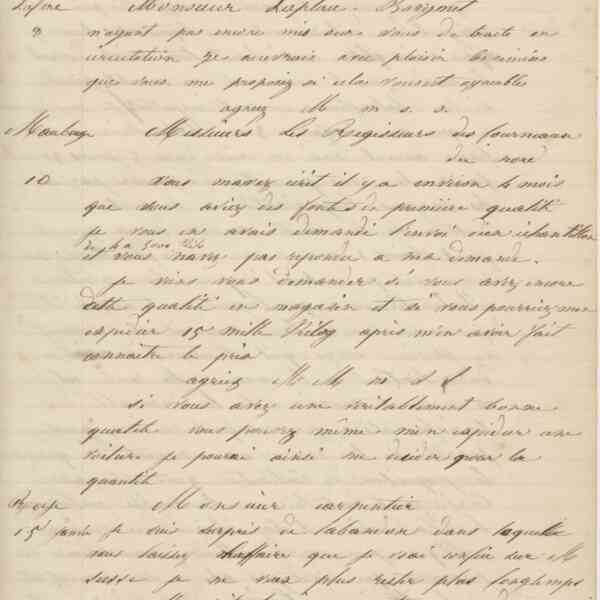 Monsieur
n'ayant pas encore mis sur vous de traite en
circulation je recevrais avec plaisir les
que vous me proposez si elles vous sont
agreez M m s s
Maubeuge Messieurs les Regisseurs des fourneaux
du nord
10 vous mavez ecrit il y a environ 4 mois
que vous aviez des fontes de premiere qualité
je vous en avais demandé l'envoi d'un échantillon
de 4 a 5000
et vous navez pas repondu a ma demande.
je viens vous demander si vous avez encore
cette qualité en magasin et si vous pourriez men
expedier 15 mille kilog apres m'en avoir fait
connaitre le prix
agreez M M m s s
si vous avez une veritablement bonne
qualité vous pouvez même m'en expedier une
voiture je pourai ainsi me decider pour la
quantité
Monsieur carpentier
15 je suis surpris de labandon dans laquelle
vous laissez l'affaire que je vous ai confié sur M
je ne veux plus rester plus longtemps